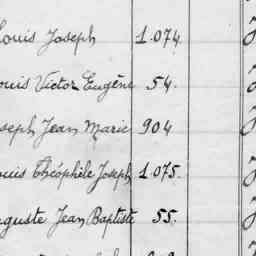 Louis Joseph 1.074.
ouis Victor Eugène 54.
seph Jean Marie 904
ouis Théophile Joseph 1.075.
uguste Jean Baptiste 55.